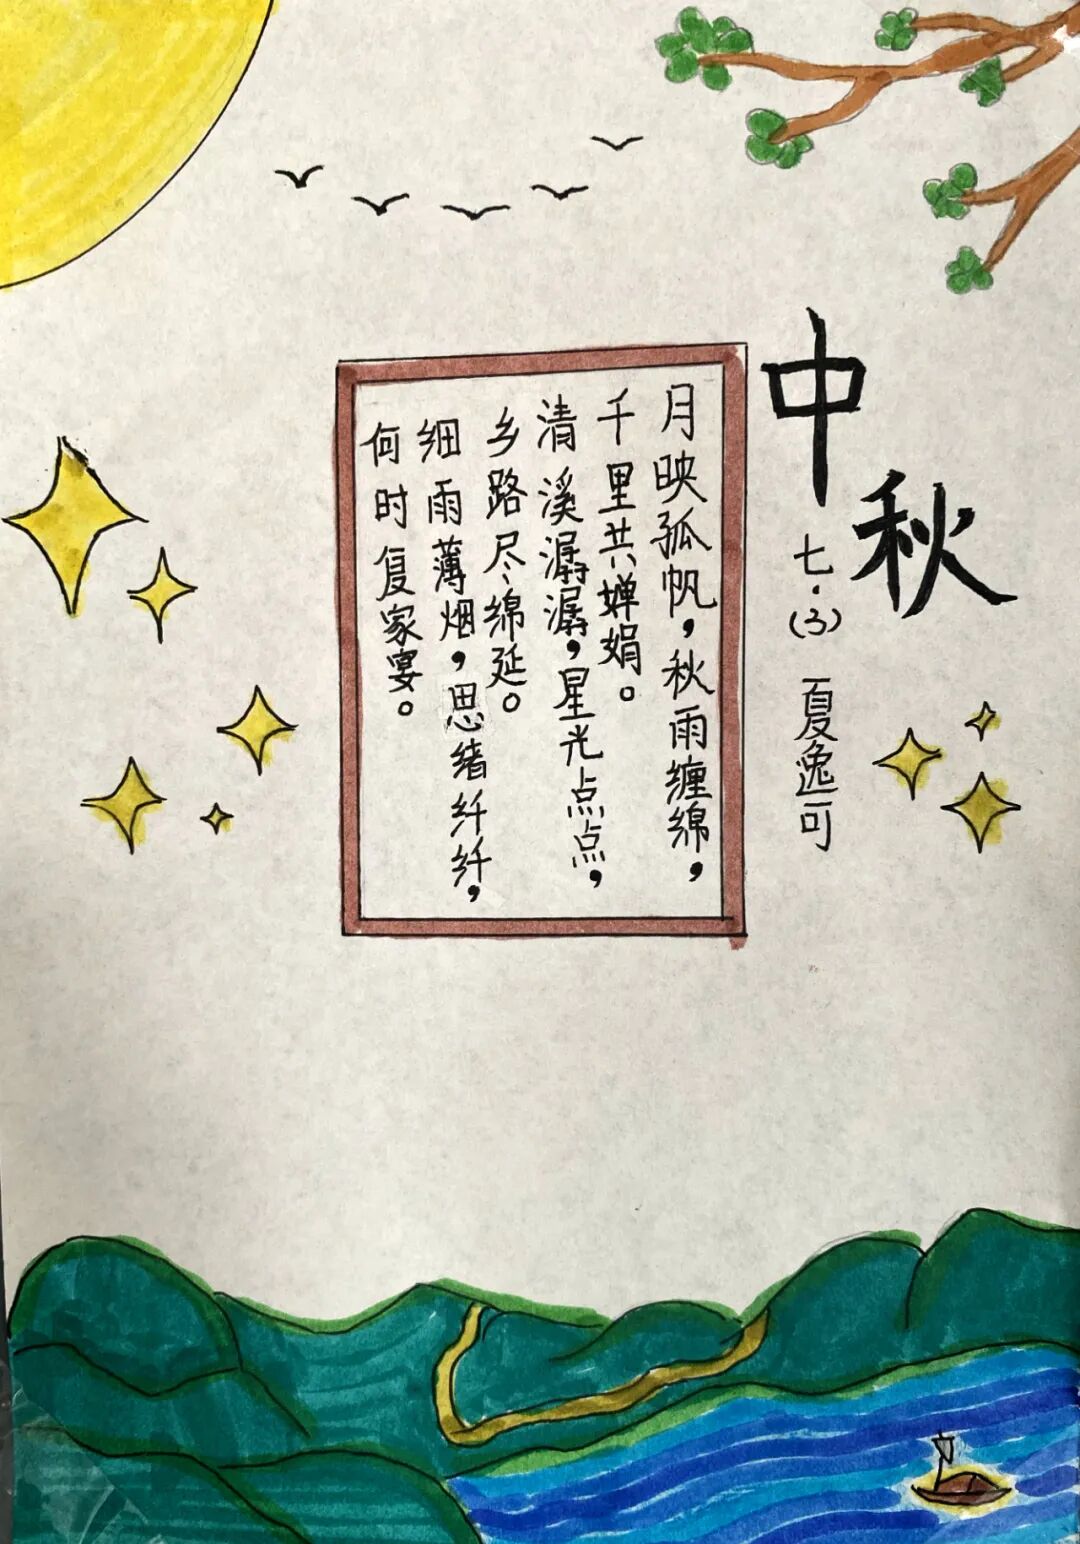 中秋
七·(3) 夏逸可
月映孤帆，秋雨缠绵，
千里共婵娟。
清溪潺潺，星光点点，
乡路尽绵延。
细雨薄烟，思绪纤纤，
何时复家宴。